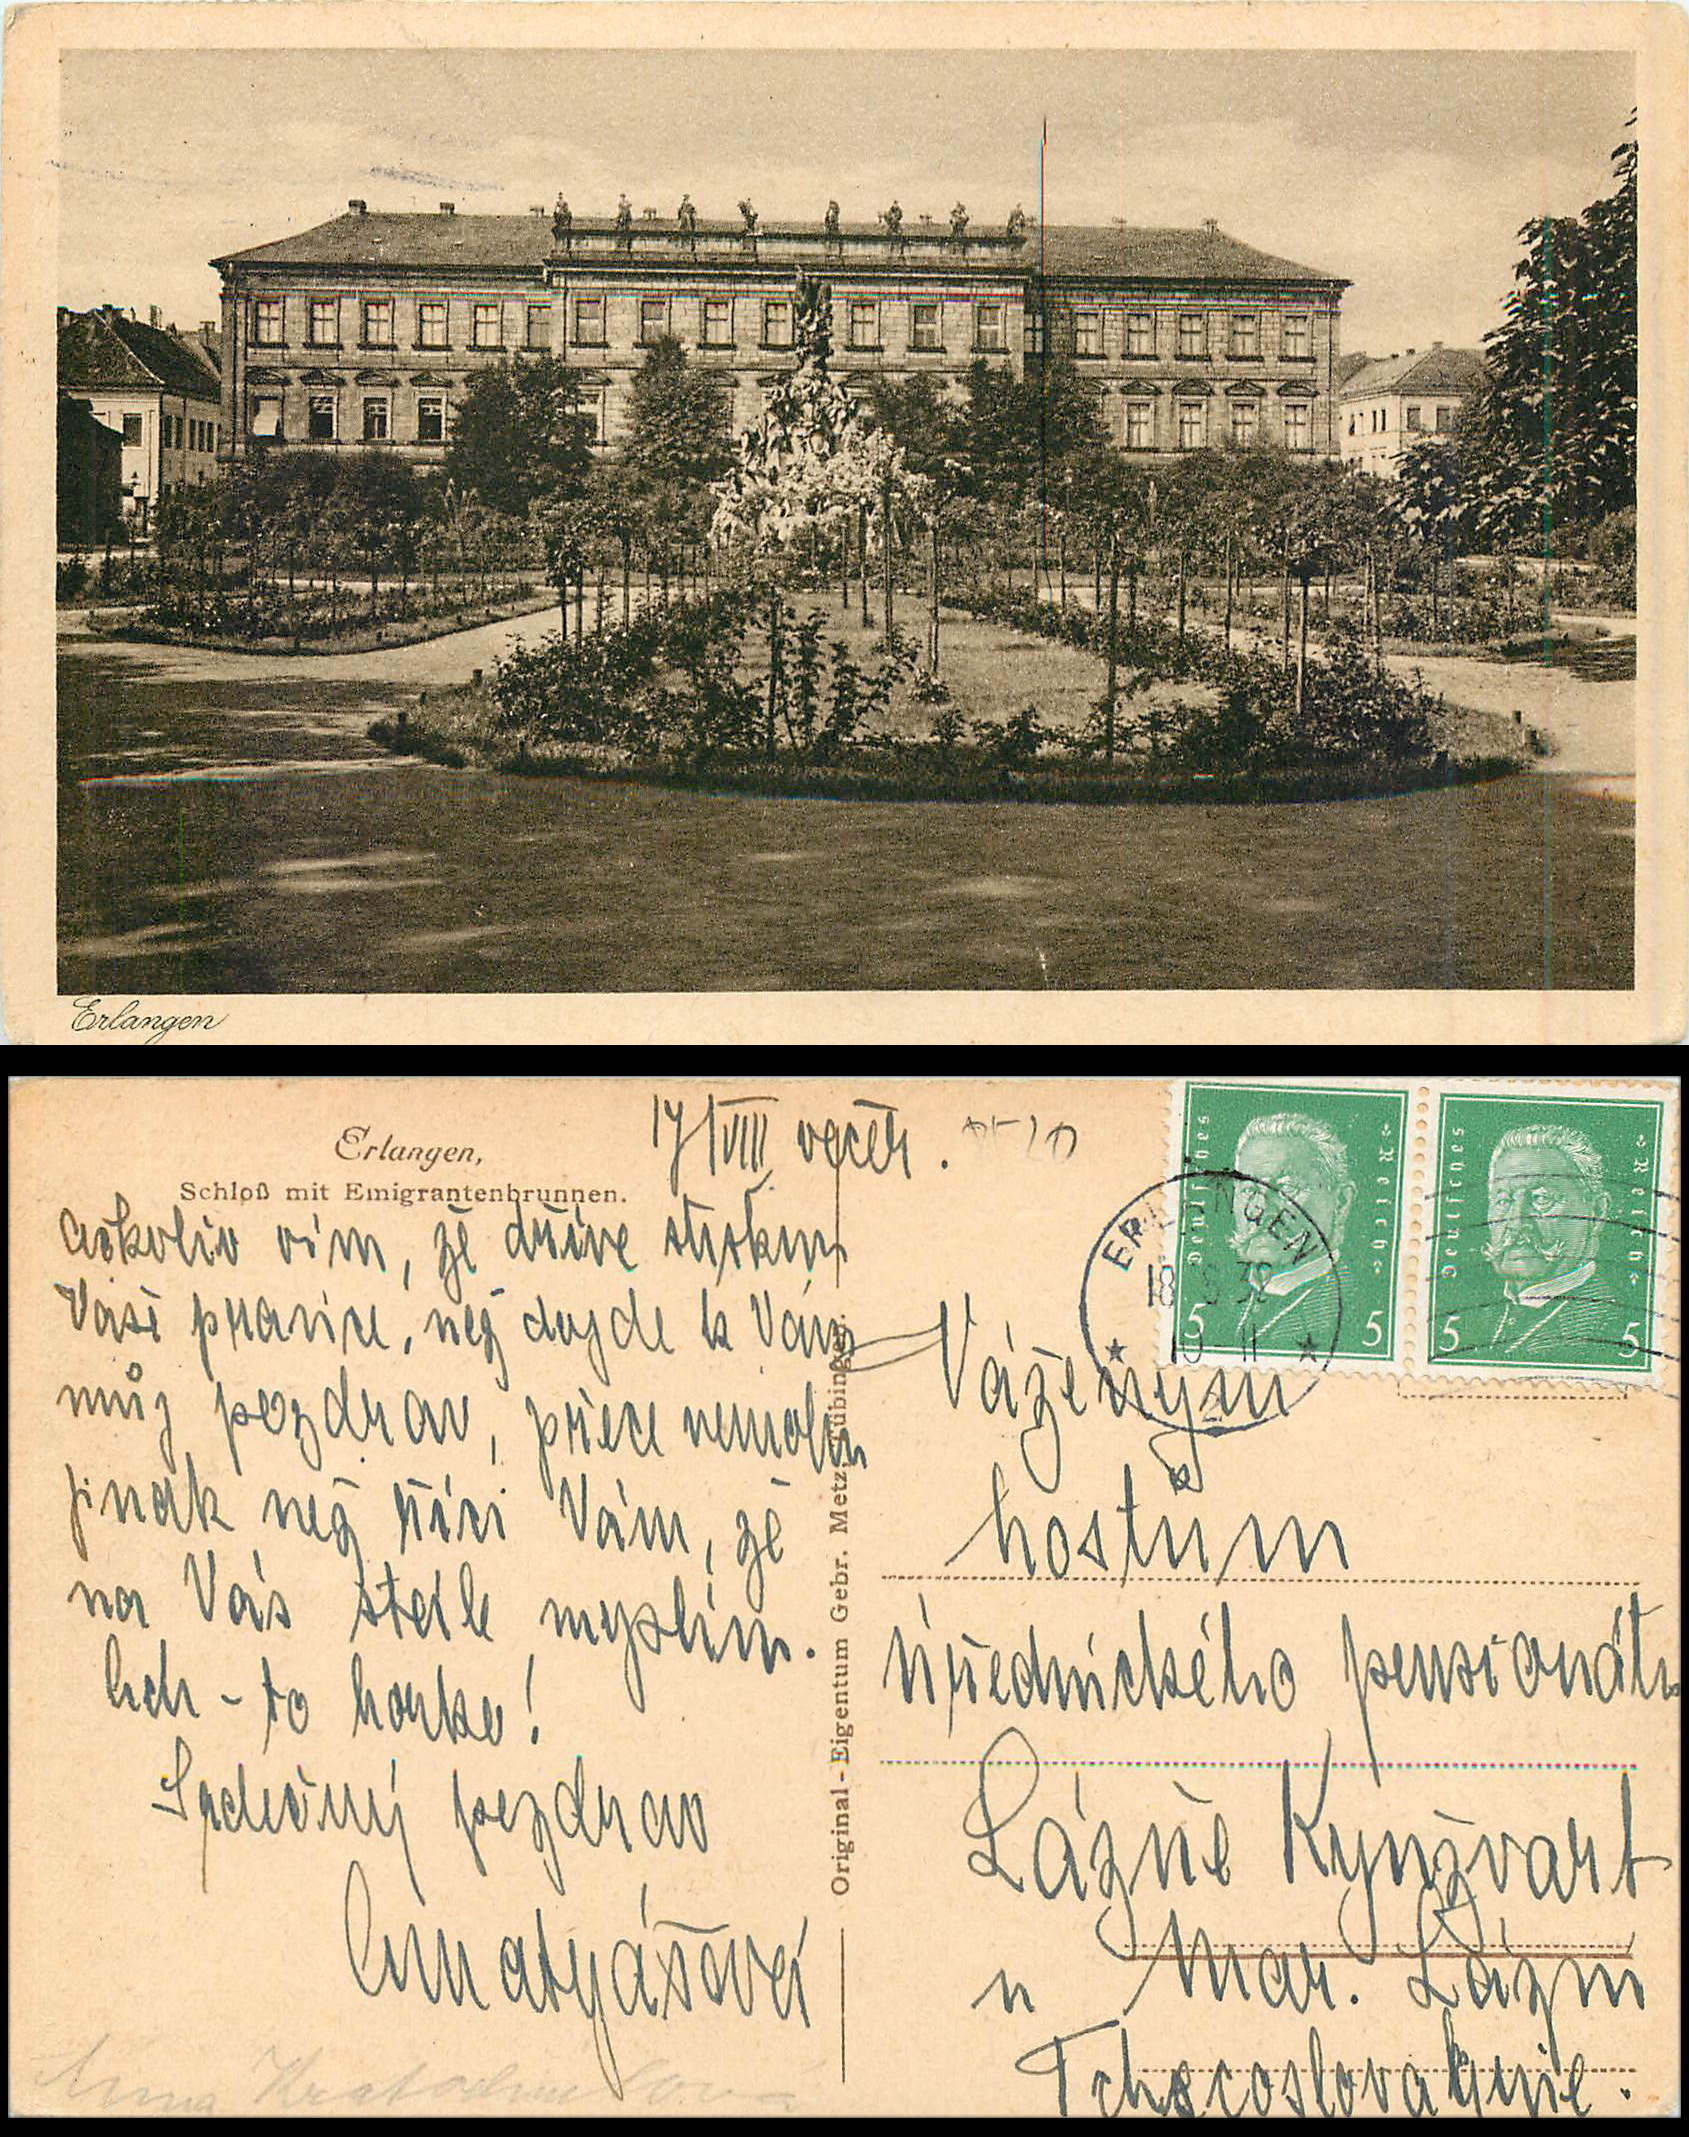 Erlangen
Erlangen,
Schloß mit Emigrantenbrunnen.
17/VIII večer.
ačkoliv vím, že dříve stisknu
Vaši pravici, než dojde k Vám
můj pozdrav, přece nemohu
jinak než říci Vám, že
na Vás stále myslím.
to horko!
Srdečný pozdrav
Original-Eigentum Gebr. Metz, Tübingen.
Deutsches Reich
5 5
Deutsches Reich
5 5
ERLANGEN
18 8 32
10 11
2
Váženým
hostům
úřednického pensionátu
Lázně Kynžvart
u Mar. Lázní
Tchecoslovaquie.
Anna